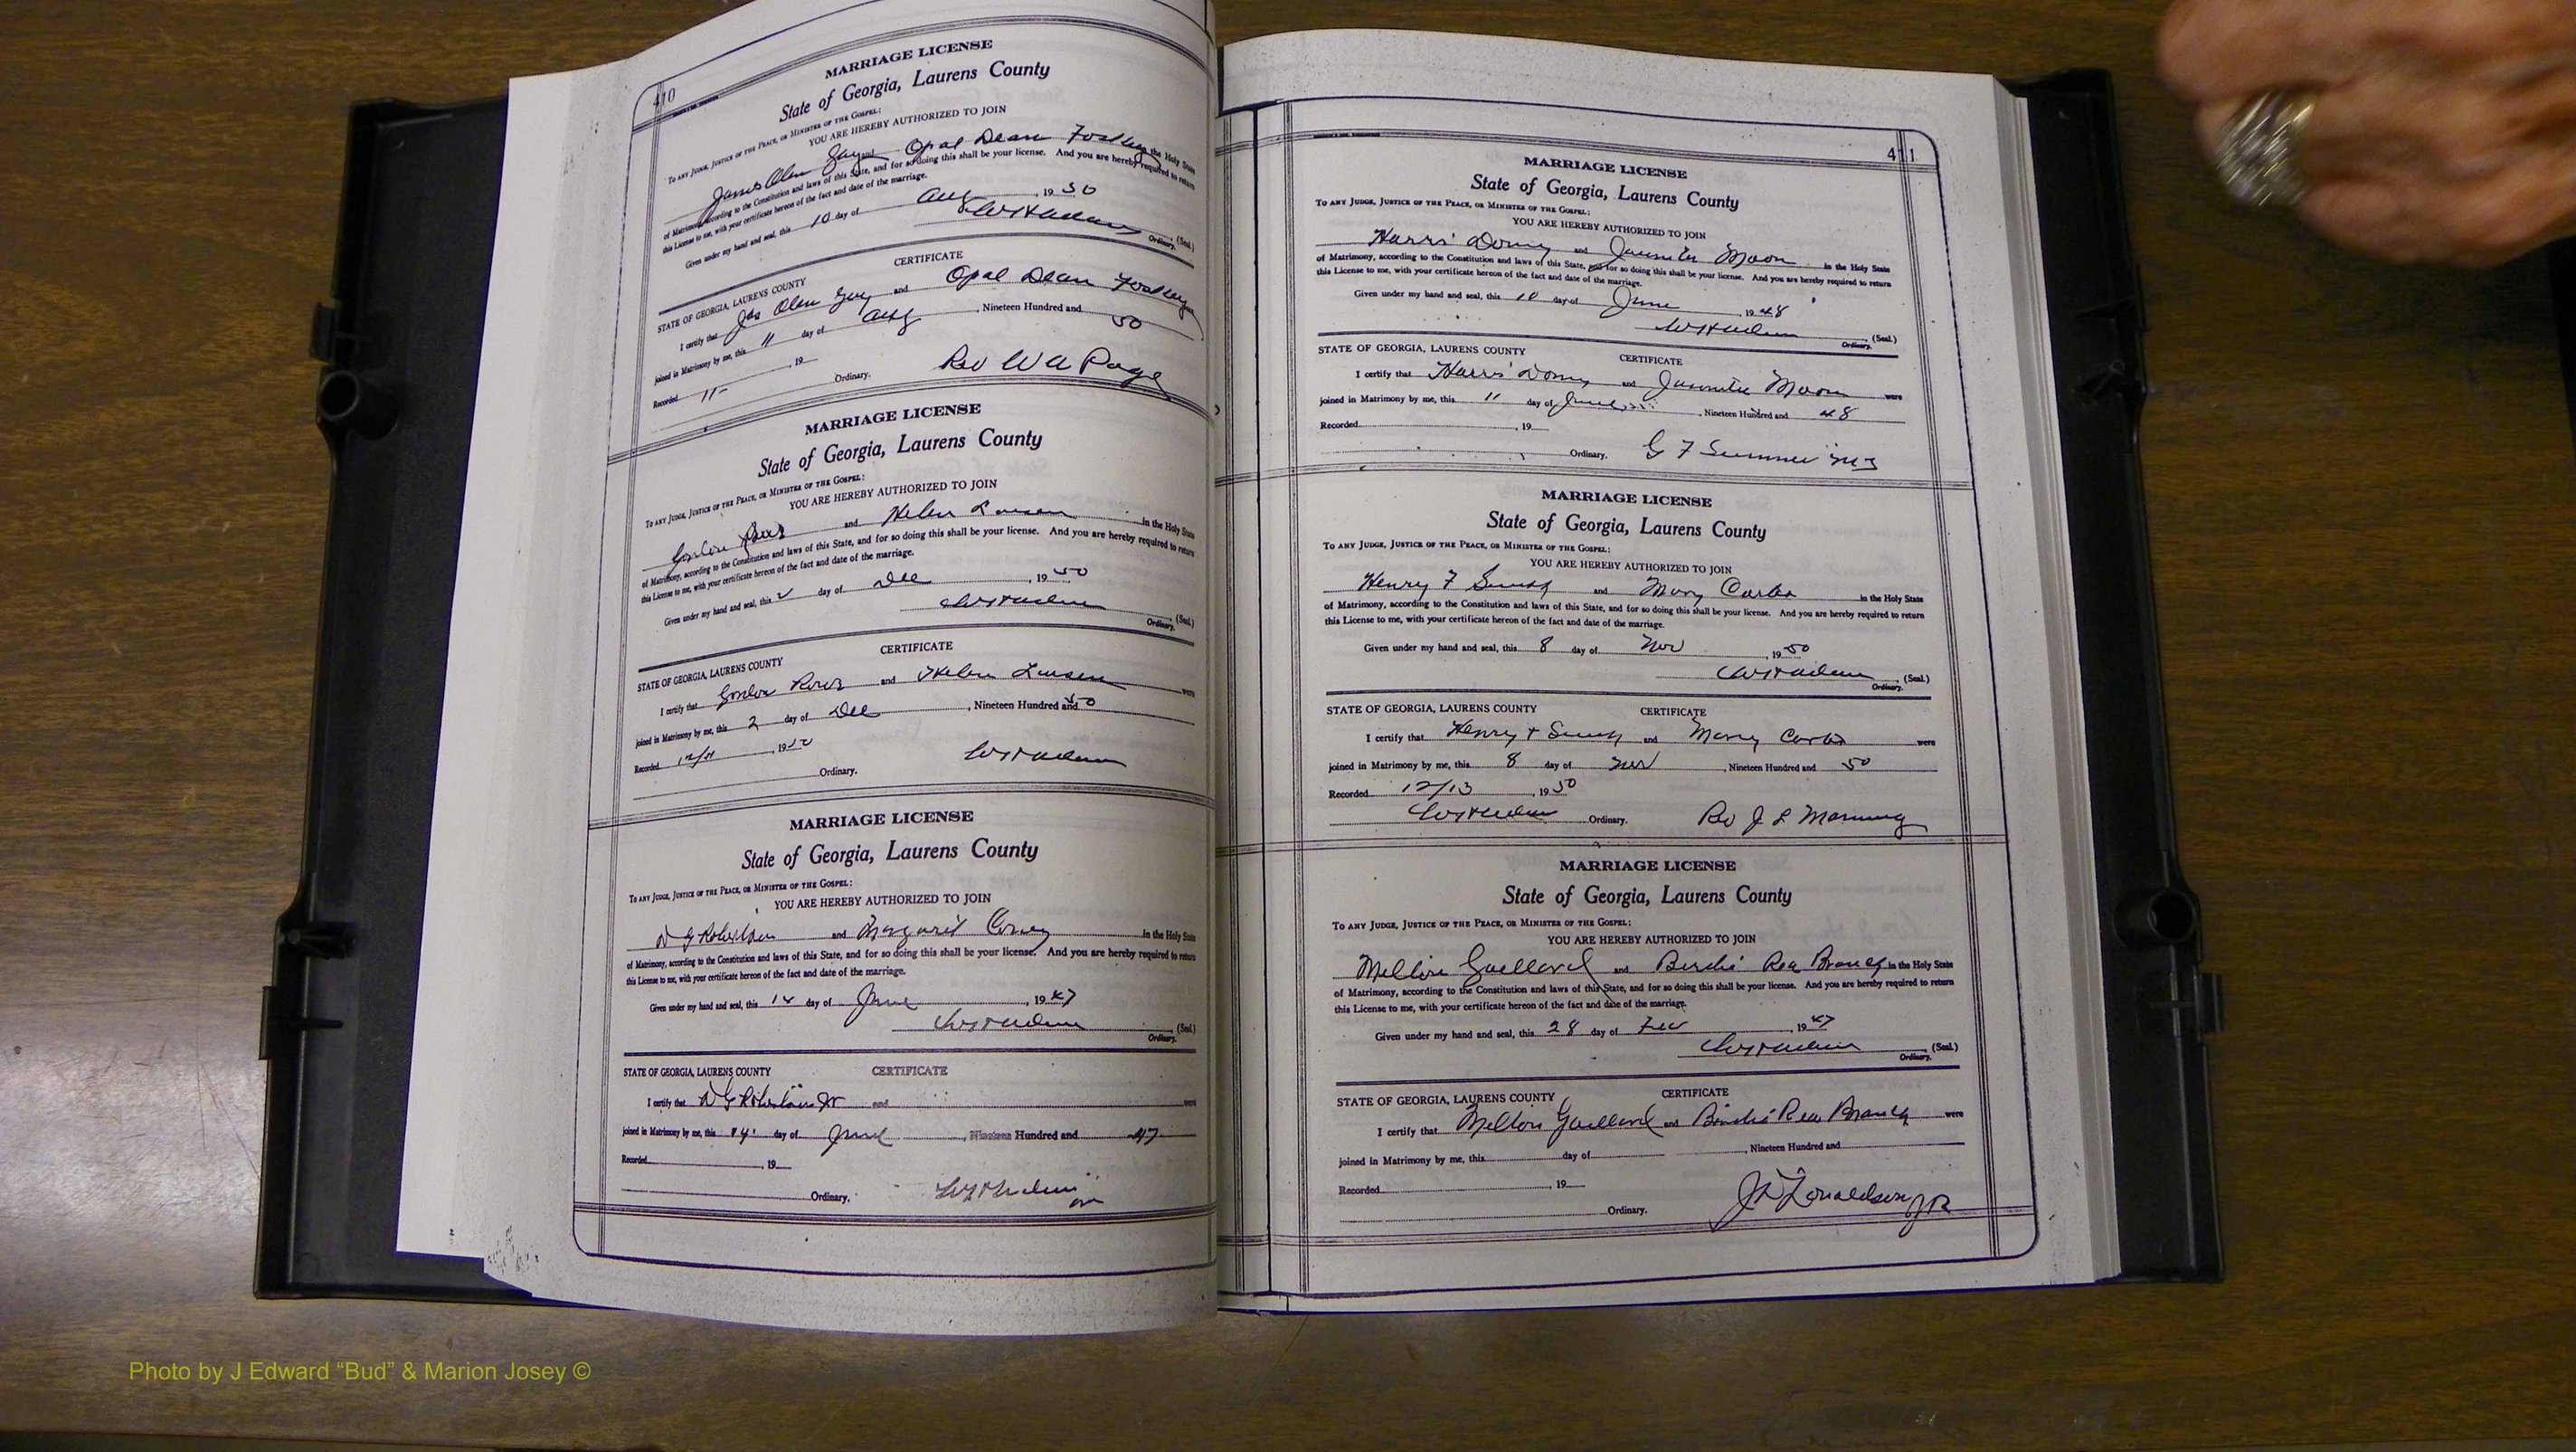 410
MARRIAGE LICENSE
State of Georgia, Laurens County
TO ANY JUDGE, JUSTICE OF THE PEACE, OR MINISTER OF THE GOSPEL:
YOU ARE HEREBY AUTHORIZED TO JOIN
James Olen Guy and Opal Dean in the Holy State
of Matrimony, according to the Constitution and laws of this State, and for so doing this shall be your license. And you are hereby required to return
this License to me, with your certificate hereon of the fact and date of the marriage.
Given under my hand and seal, this 10 day of Aug, 1950
(Seal.)
Ordinary.
CERTIFICATE
STATE OF GEORGIA, LAURENS COUNTY
I certify that Jas Olen Guy and Opal Dean
joined in Matrimony by me, this 11 day of Aug, Nineteen Hundred and 50
Recorded 11-, 19
Ordinary. Rev W A Page
MARRIAGE LICENSE
State of Georgia, Laurens County
TO ANY JUDGE, JUSTICE OF THE PEACE, OR MINISTER OF THE GOSPEL:
YOU ARE HEREBY AUTHORIZED TO JOIN
Gordon and Helen in the Holy State
of Matrimony, according to the Constitution and laws of this State, and for so doing this shall be your license. And you are hereby required to return
this License to me, with your certificate hereon of the fact and date of the marriage.
Given under my hand and seal, this 2 day of Dec, 1950
(Seal.)
Ordinary.
CERTIFICATE
STATE OF GEORGIA, LAURENS COUNTY
I certify that Gordon and Helen were
joined in Matrimony by me, this 2 day of Dec, Nineteen Hundred and 50
Recorded, 1950
Ordinary.
MARRIAGE LICENSE
State of Georgia, Laurens County
TO ANY JUDGE, JUSTICE OF THE PEACE, OR MINISTER OF THE GOSPEL:
YOU ARE HEREBY AUTHORIZED TO JOIN
N G Robertson and Margaret in the Holy State
of Matrimony, according to the Constitution and laws of this State, and for so doing this shall be your license. And you are hereby required to return
this License to me, with your certificate hereon of the fact and date of the marriage.
Given under my hand and seal, this 14 day of June, 1947
(Seal.)
Ordinary.
STATE OF GEORGIA, LAURENS COUNTY CERTIFICATE
I certify that N G Robertson Jr and were
joined in Matrimony by me, this 14 day of June, Nineteen Hundred and 47
Recorded, 19
Ordinary.
411
MARRIAGE LICENSE
State of Georgia, Laurens County
TO ANY JUDGE, JUSTICE OF THE PEACE, OR MINISTER OF THE GOSPEL:
YOU ARE HEREBY AUTHORIZED TO JOIN
Harris and Juanita Moon in the Holy State
of Matrimony, according to the Constitution and laws of this State, and for so doing this shall be your license. And you are hereby required to return
this License to me, with your certificate hereon of the fact and date of the marriage.
Given under my hand and seal, this 10 day of June, 1948
(Seal.)
Ordinary.
STATE OF GEORGIA, LAURENS COUNTY CERTIFICATE
I certify that Harris and Juanita Moon were
joined in Matrimony by me, this 11 day of June, Nineteen Hundred and 48
Recorded, 19
Ordinary. G F
MARRIAGE LICENSE
State of Georgia, Laurens County
TO ANY JUDGE, JUSTICE OF THE PEACE, OR MINISTER OF THE GOSPEL:
YOU ARE HEREBY AUTHORIZED TO JOIN
Henry F and Mary in the Holy State
of Matrimony, according to the Constitution and laws of this State, and for so doing this shall be your license. And you are hereby required to return
this License to me, with your certificate hereon of the fact and date of the marriage.
Given under my hand and seal, this 8 day of Nov, 1950
(Seal.)
Ordinary.
STATE OF GEORGIA, LAURENS COUNTY CERTIFICATE
I certify that Henry and Mary were
joined in Matrimony by me, this 8 day of Nov, Nineteen Hundred and 50
Recorded 12/13, 1950
Ordinary. Rev J L
MARRIAGE LICENSE
State of Georgia, Laurens County
TO ANY JUDGE, JUSTICE OF THE PEACE, OR MINISTER OF THE GOSPEL:
YOU ARE HEREBY AUTHORIZED TO JOIN
Gaillard and Rea Branch in the Holy State
of Matrimony, according to the Constitution and laws of this State, and for so doing this shall be your license. And you are hereby required to return
this License to me, with your certificate hereon of the fact and date of the marriage.
Given under my hand and seal, this 28 day of, 1947
(Seal.)
Ordinary.
STATE OF GEORGIA, LAURENS COUNTY CERTIFICATE
I certify that Gaillard and Rea Branch were
joined in Matrimony by me, this day of, Nineteen Hundred and
Recorded, 19
Ordinary. Donaldson
Photo by J Edward “Bud” & Marion Josey ©